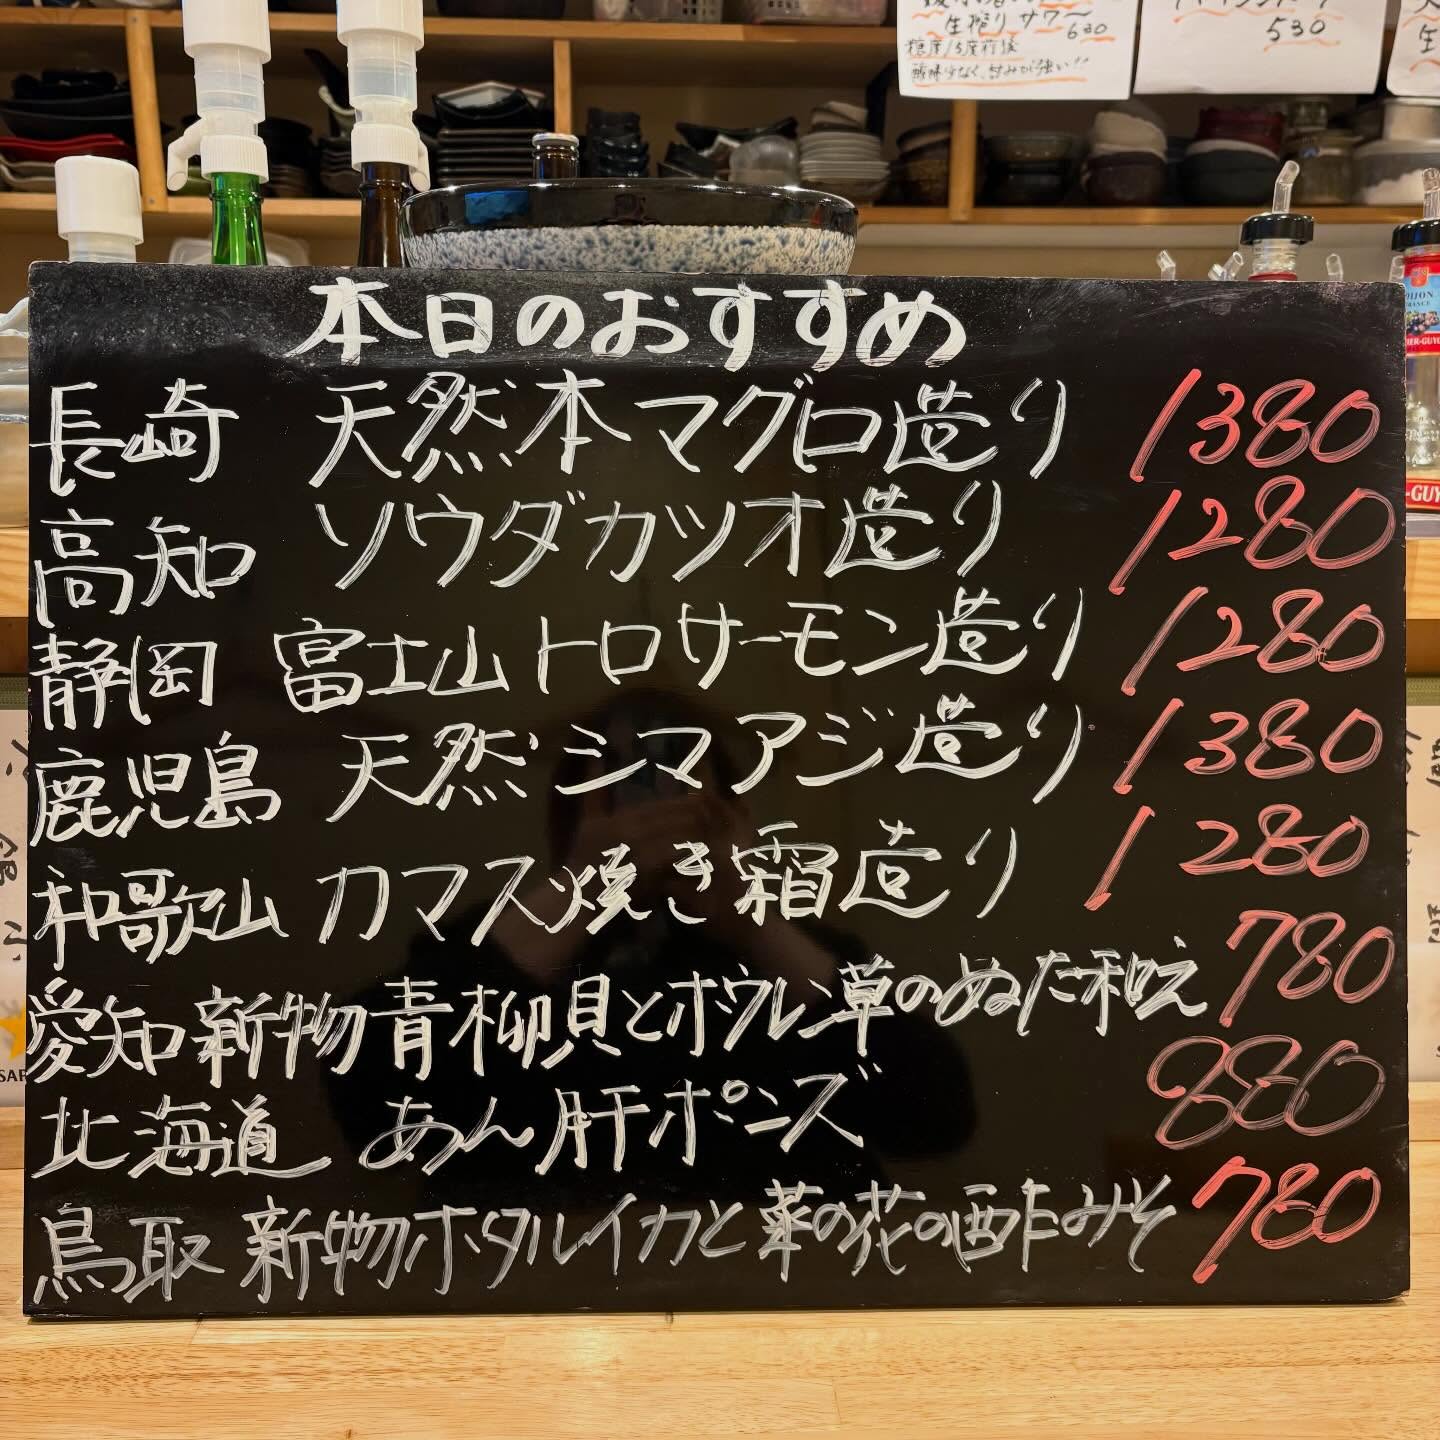 生搾りサワー 630
糖度15度前後
酸味少なく、甘みが強い!!
530
本日のおすすめ
長崎 天然本マグロ造り 1380
高知 ソウダカツオ造り 1280
静岡 富士山トロサーモン造り 1280
鹿児島 天然シマアジ造り 1380
和歌山 カマス焼き霜造り 1280
愛知 新物青柳貝とホウレン草のぬた和え 780
北海道 あん肝ポンズ 880
鳥取 新物ホタルイカと菜の花の酢みそ 780